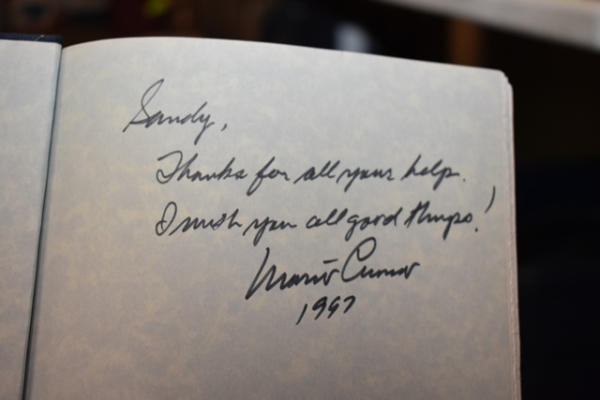 Sandy,
Thanks for all your help.
I wish you all good things!
Mario Cuomo
1997